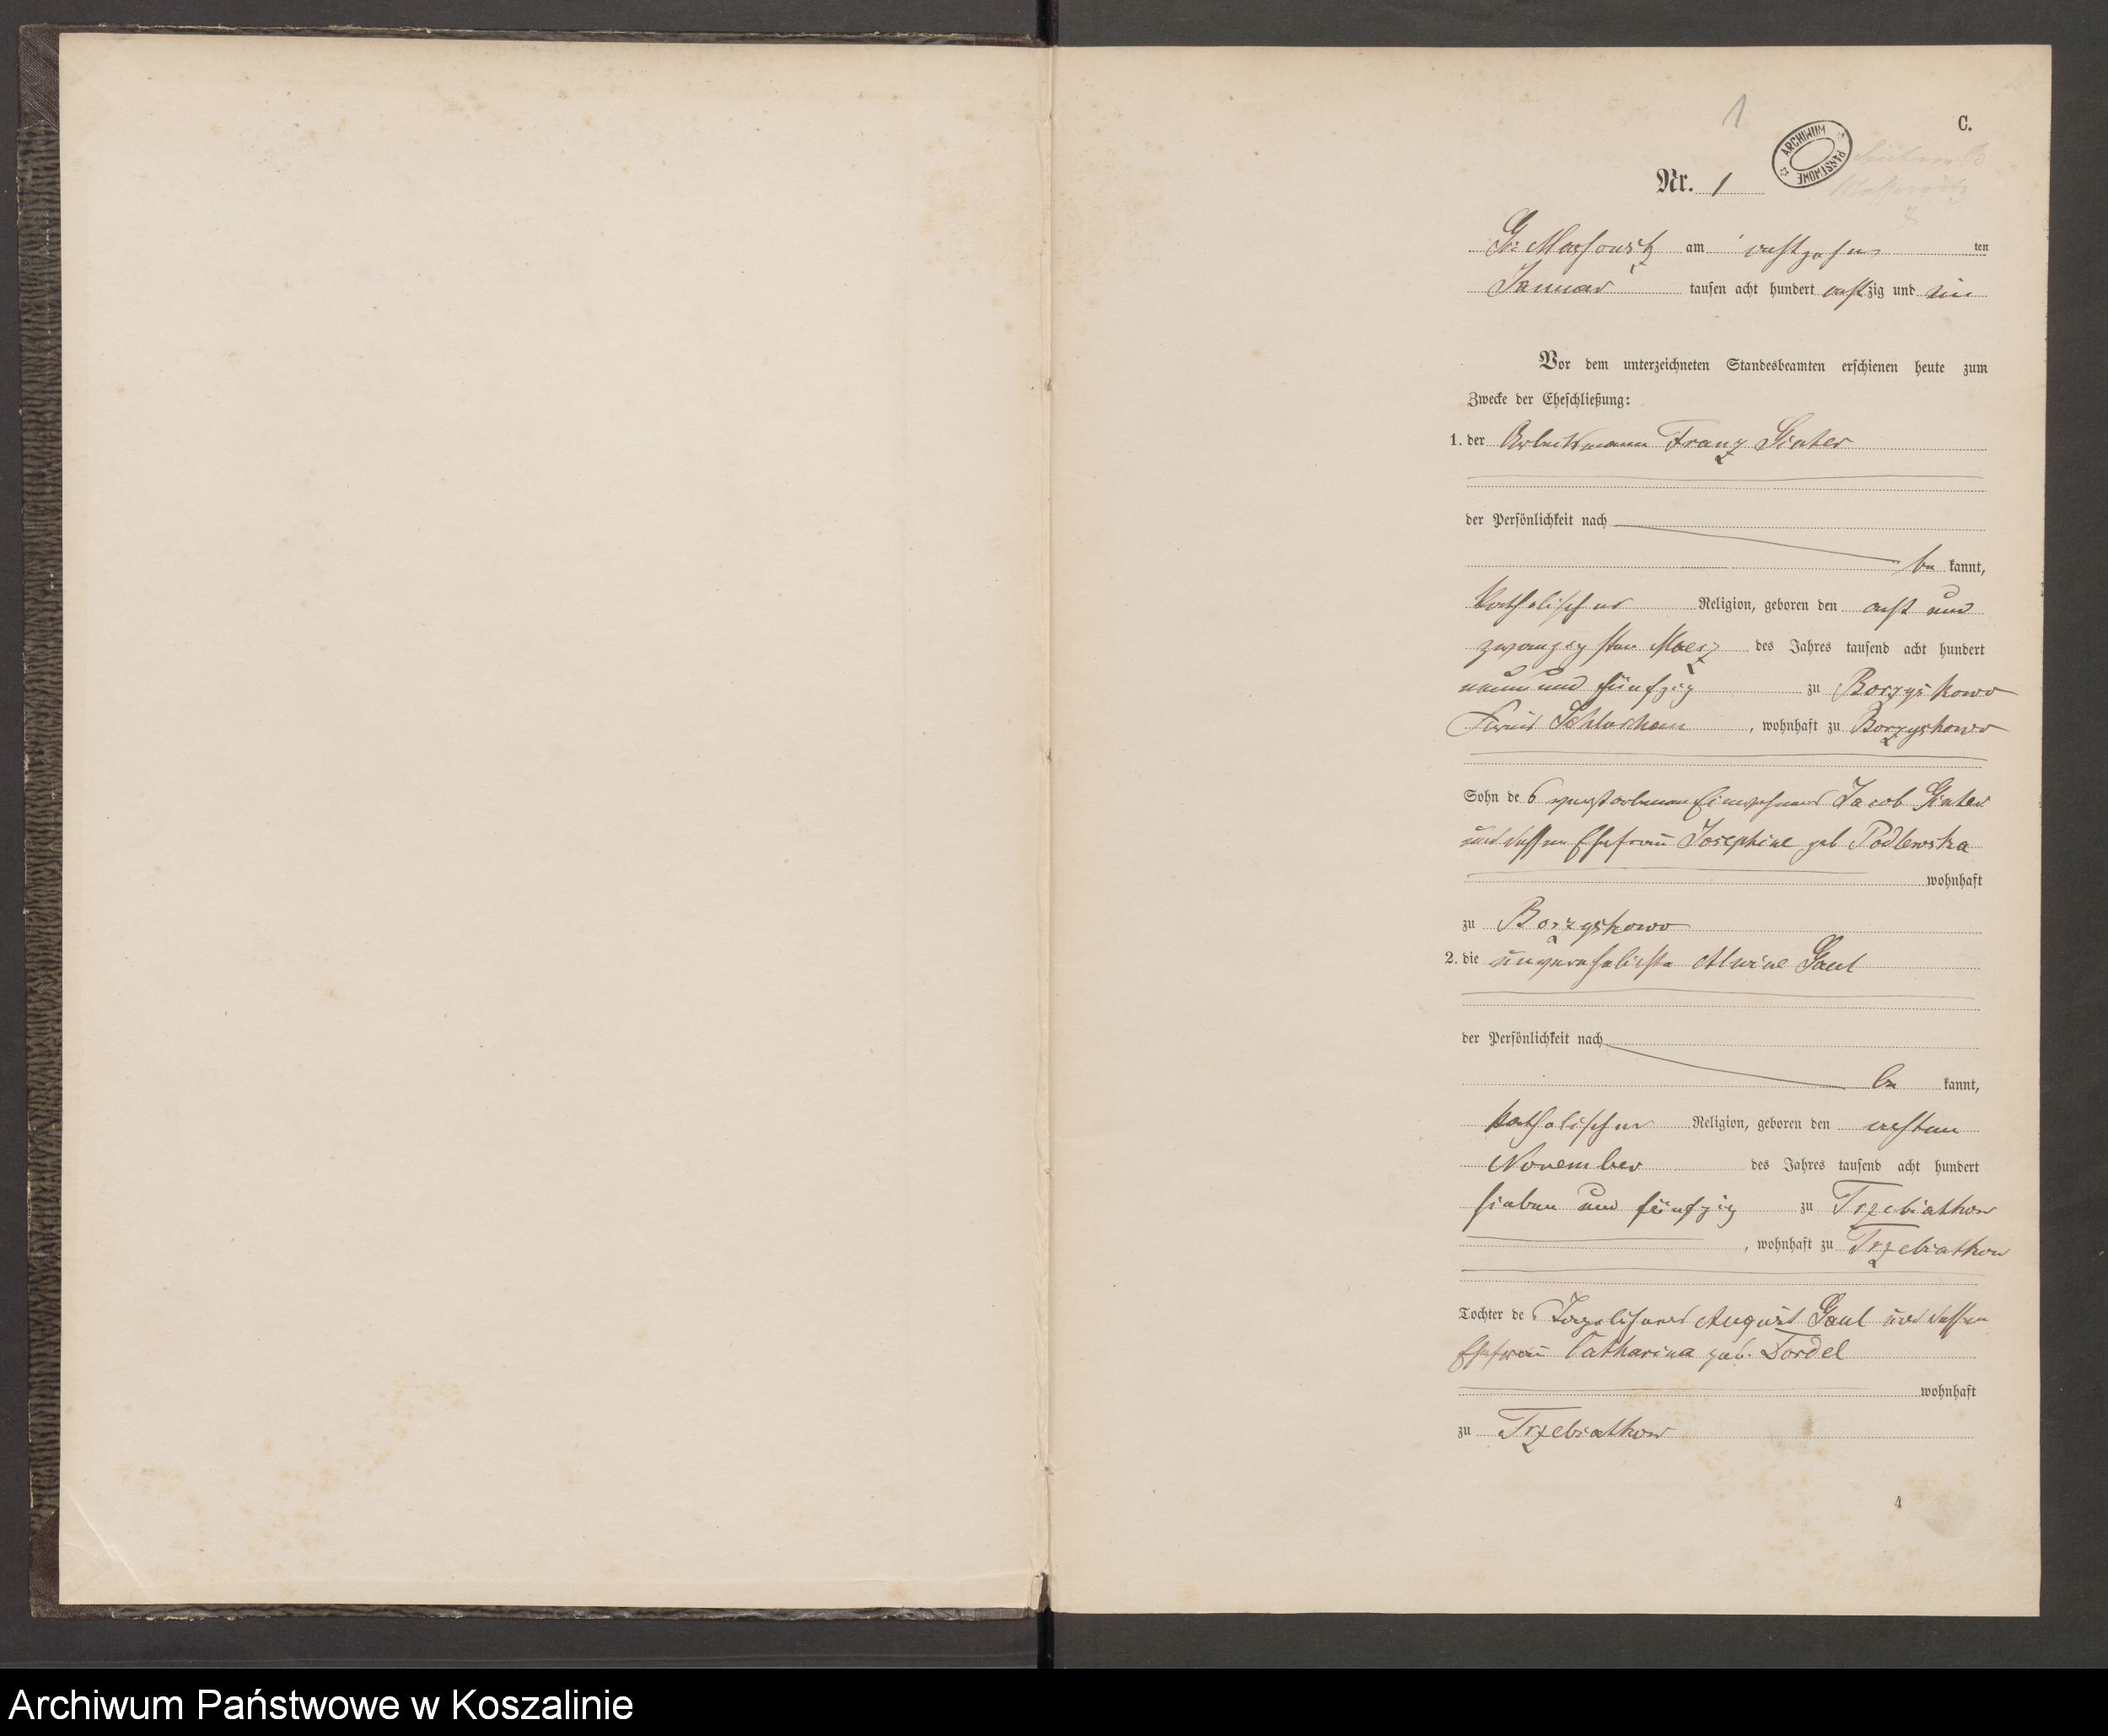 1
C.
ARCHIWUM PAŃSTWOWE
Nr. 1
Gr: Massowitz am achtzehn ten
Januar tausen acht hundert achtzig und ein
Vor dem unterzeichneten Standesbeamten erschienen heute zum
Zwecke der Eheschließung:
1. der Arbeitsmann Franz Ginter
der Persönlichkeit nach
be kannt,
katholischer Religion, geboren den acht und
zwanzigsten Maerz des Jahres tausend acht hundert
neun und fünfzig zu Borzyskowo
Kreis Schlochau, wohnhaft zu Borzyskowo
Sohn des verstorbenen Einwohners Jacob Ginter
und dessen Ehefrau Josephine geb Podlewska
wohnhaft
zu Borzyskowo
2. die unverehelichte Alwine Gaul
der Persönlichkeit nach
be kannt,
katholischer Religion, geboren den ersten
November des Jahres tausend acht hundert
sieben und fünfzig zu Trzebiatkow
, wohnhaft zu Trzebiatkow
Tochter des August Gaul und dessen
Ehefrau Catharina geb. Tordel
wohnhaft
zu Trzebiatkow
4
Archiwum Państwowe w Koszalinie